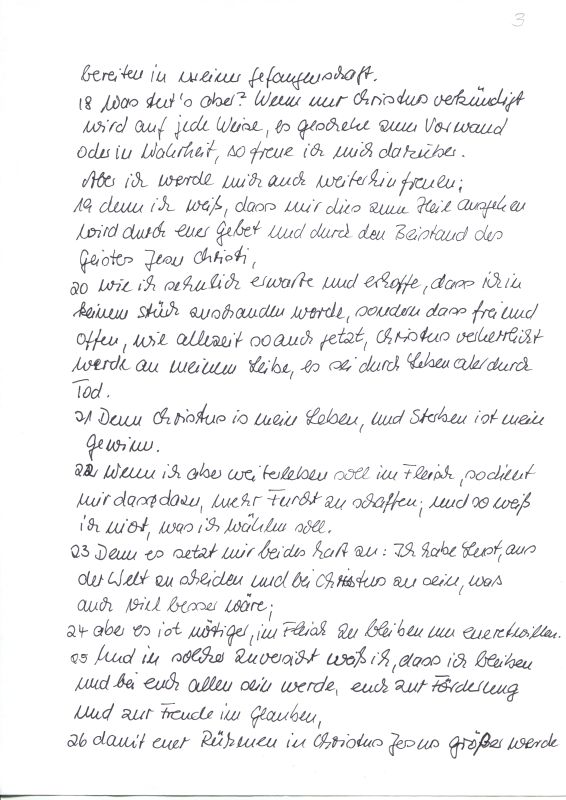 3
bereiten in meiner Gefangenschaft.
18 Was tut's aber? Wenn nur Christus verkündigt
wird auf jede Weise, es geschehe zum Vorwand
oder in Wahrheit, so freue ich mich darüber.
Aber ich werde mich auch weiterhin freuen;
19 denn ich weiß, dass mir dies zum Heil ausgehen
wird durch euer Gebet und durch den Beistand des
Geistes Jesu Christi,
20 wie ich sehnlich erwarte und erhoffe, dass ich in
keinem Stück zuschanden werde, sondern dass frei und
offen, wie allezeit so auch jetzt, Christus verherrlicht
werde an meinem Leibe, es sei durch Leben oder durch
Tod.
21 Denn Christus is mein Leben, und Sterben ist mein
Gewinn.
22 Wenn ich aber weiterleben soll im Fleisch, so dient
mir dass dazu, mehr Furcht zu schaffen; und so weiß
ich nicht, was ich wählen soll.
23 Denn es setzt mir beides hart an: Ich habe Lust, aus
der Welt zu scheiden und bei Christus zu sein, was
auch viel besser wäre;
24 aber es ist nötiger, im Fleisch zu bleiben um euretwillen.
25 Und in solcher Zuversicht weiß ich, dass ich bleiben
und bei euch allen sein werde, euch zur Förderung
und zur Freude im Glauben,
26 damit euer Rühmen in Christus Jesus größer werde